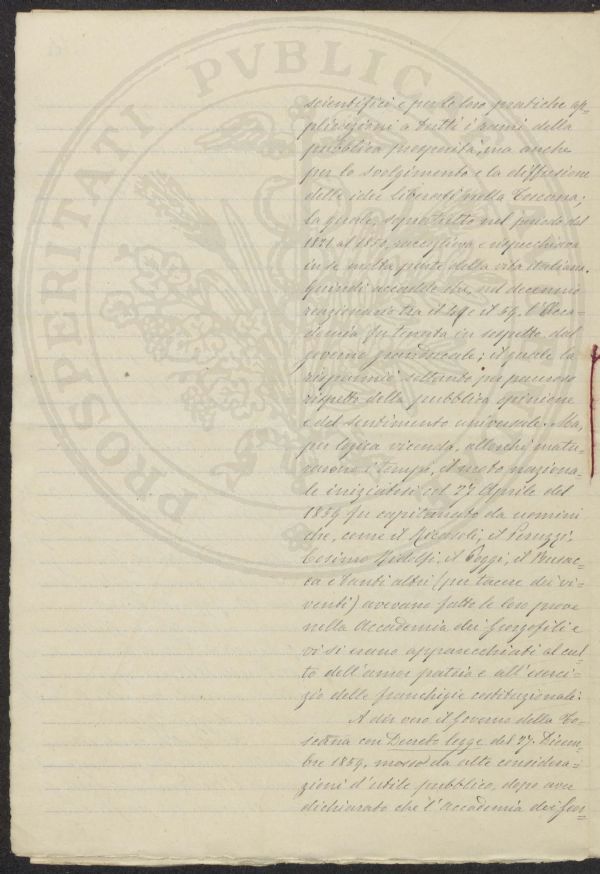 PROSPERITATI PVBLIC
scientifici e per le loro pratiche ap=
plicazioni a tutti i rami della
pubblica prosperità, ma anche
per lo svolgimento e la diffusione
delle idee liberali nella Toscana;
la quale, sopratutto nel periodo dal
1821 al 1850, raccoglieva e rispecchiava
in se molta parte della vita italiana.
Quindi accadde che, nel decennio
reazionario tra il 49 e il 59, l'Acca=
demia fu tenuta in sospetto dal
governo granducale; il quale la
risparmiò soltanto per pauroso
rispetto della pubblica opinione
e del sentimento universale. Ma,
per logica vicenda, allorchè matu=
rarono i tempi, il moto naziona=
le iniziatosi col 27 Aprile del
1859 fu capitanato da uomini
che, come il Ricasoli, il Peruzzi,
Cosimo Ridolfi, il Poggi, il Busac=
ca e tanti altri (per tacere dei vi=
venti) avevano fatto le loro prove
nella Accademia dei Georgofili e
vi si erano apparecchiati al cul=
to dell'amor patrio e all'eserci=
zio delle franchigie costituzionali.
A dir vero il Governo della To=
scana con Decreto legge del 27 Dicem=
bre 1859, mosso da alte considera=
zioni d'utile pubblico, dopo aver
dichiarato che l'Accademia dei Geor=